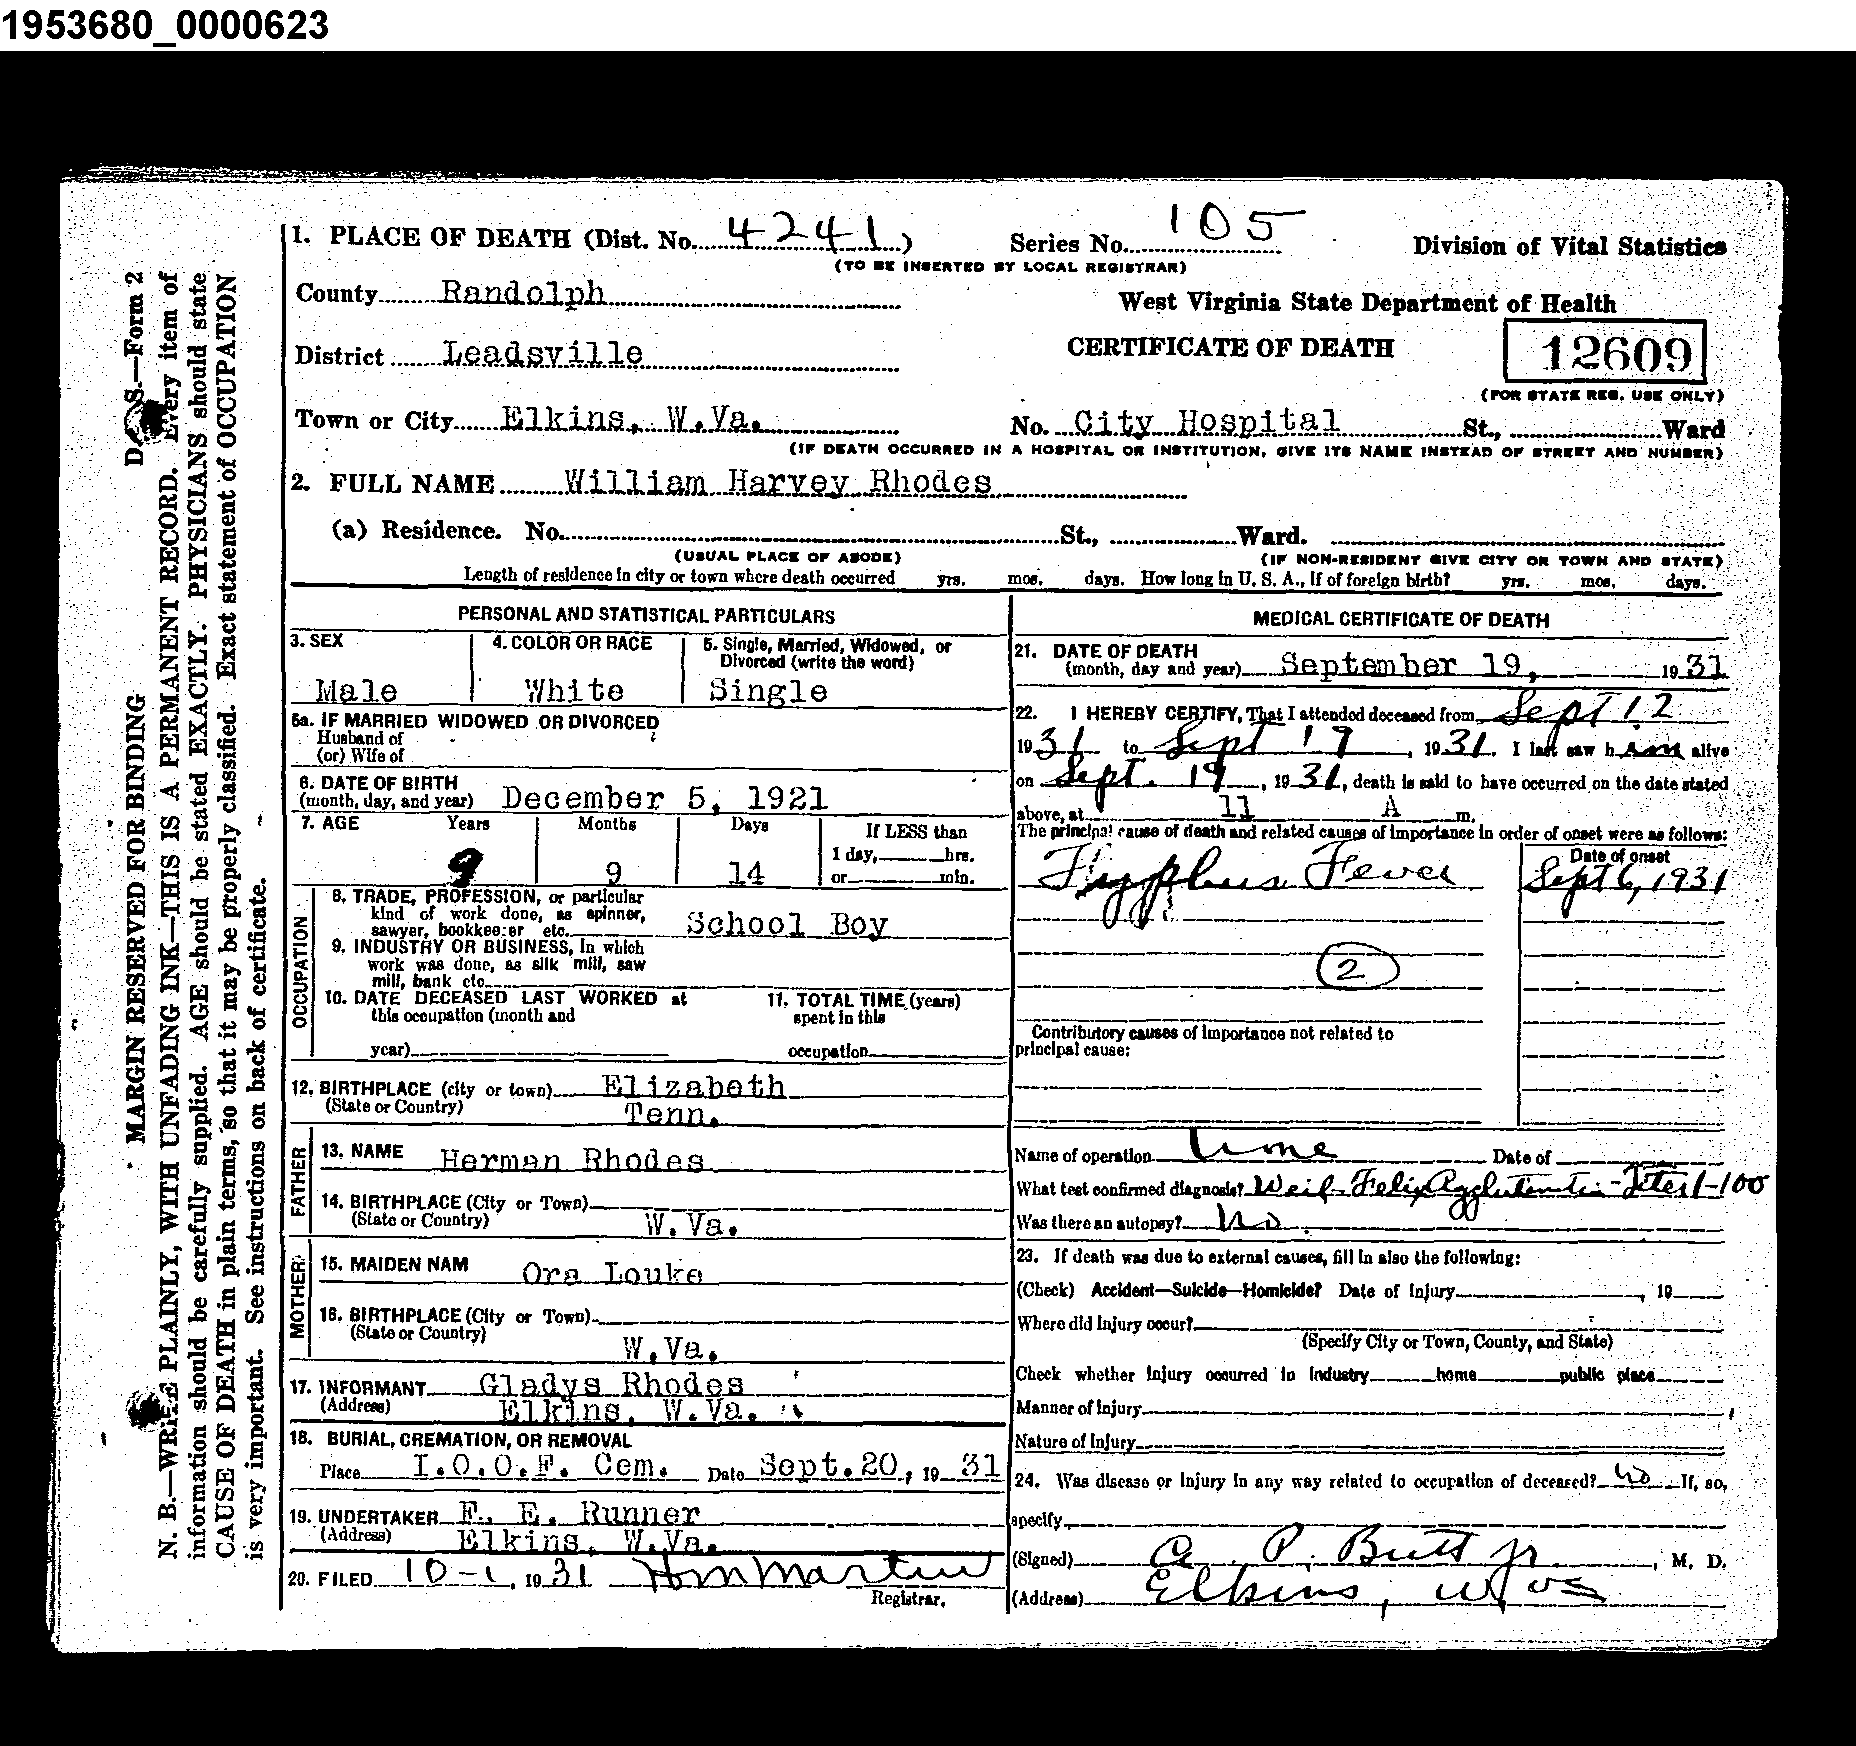 1953680_0000623
1. PLACE OF DEATH (Dist. No. 4241) Series No. 105 Division of Vital Statistics
(TO BE INSERTED BY LOCAL REGISTRAR)
County Randolph West Virginia State Department of Health
District Leadsville CERTIFICATE OF DEATH 12609
(FOR STATE REG. USE ONLY)
Town or City Elkins, W.Va. No. City Hospital St., Ward
(IF DEATH OCCURRED IN A HOSPITAL OR INSTITUTION, GIVE ITS NAME INSTEAD OF STREET AND NUMBER)
2. FULL NAME William Harvey Rhodes
(a) Residence. No. St., Ward.
(USUAL PLACE OF ABODE) (IF NON-RESIDENT GIVE CITY OR TOWN AND STATE)
Length of residence in city or town where death occurred yrs. mos. days. How long in U. S. A., if of foreign birth? yrs. mos. days.
PERSONAL AND STATISTICAL PARTICULARS
3. SEX 4. COLOR OR RACE 5. Single, Married, Widowed, or
Divorced (write the word)
Male White Single
5a. IF MARRIED WIDOWED OR DIVORCED
Husband of
(or) Wife of
6. DATE OF BIRTH
(month, day, and year) December 5, 1921
7. AGE Years Months Days If LESS than
1 day, hrs.
9 9 14 or min.
OCCUPATION
8. TRADE, PROFESSION, or particular
kind of work done, as spinner,
sawyer, bookkeeper etc. School Boy
9. INDUSTRY OR BUSINESS, in which
work was done, as silk mill, saw
mill, bank etc.
10. DATE DECEASED LAST WORKED at 11. TOTAL TIME (years)
this occupation (month and spent in this
year) occupation
12. BIRTHPLACE (city or town) Elizabeth
(State or Country) Tenn.
FATHER
13. NAME Herman Rhodes
14. BIRTHPLACE (City or Town)
(State or Country) W.Va.
MOTHER
15. MAIDEN NAM Ora Louke
16. BIRTHPLACE (City or Town)
(State or Country) W.Va.
17. INFORMANT Gladys Rhodes
(Address) Elkins, W.Va.
18. BURIAL, CREMATION, OR REMOVAL
Place I.O.O.F. Cem. Date Sept.20, 19 31
19. UNDERTAKER F. E. Runner
(Address) Elkins, W.Va.
20. FILED 10-1, 19 31 HM Martin
Registrar.
MEDICAL CERTIFICATE OF DEATH
21. DATE OF DEATH
(month, day and year) September 19, 19 31
22. I HEREBY CERTIFY, That I attended deceased from Sept 12
19 31 to Sept 19, 19 31. I last saw h im alive
on Sept. 19, 19 31, death is said to have occurred on the date stated
above, at 11 A m.
The principal cause of death and related causes of importance in order of onset were as follows:
Date of onset
Typhus Fever Sept 6, 1931
2
Contributory causes of importance not related to
principal cause:
Name of operation none Date of
What test confirmed diagnosis? Weil-Felix Agglutination - Titer 1-100
Was there an autopsy? no
23. If death was due to external causes, fill in also the following:
(Check) Accident—Suicide—Homicide? Date of injury , 19
Where did injury occur?
(Specify City or Town, County, and State)
Check whether injury occurred in industry home public place
Manner of injury
Nature of injury
24. Was disease or injury in any way related to occupation of deceased? no If, so,
specify
(Signed) A. P. Butt Jr. , M. D.
(Address) Elkins, W Va
MARGIN RESERVED FOR BINDING S.—Form 2
N. B.—WRITE PLAINLY, WITH UNFADING INK—THIS IS A PERMANENT RECORD. Every item of
information should be carefully supplied. AGE should be stated EXACTLY. PHYSICIANS should state
CAUSE OF DEATH in plain terms, so that it may be properly classified. Exact statement of OCCUPATION
is very important. See instructions on back of certificate.